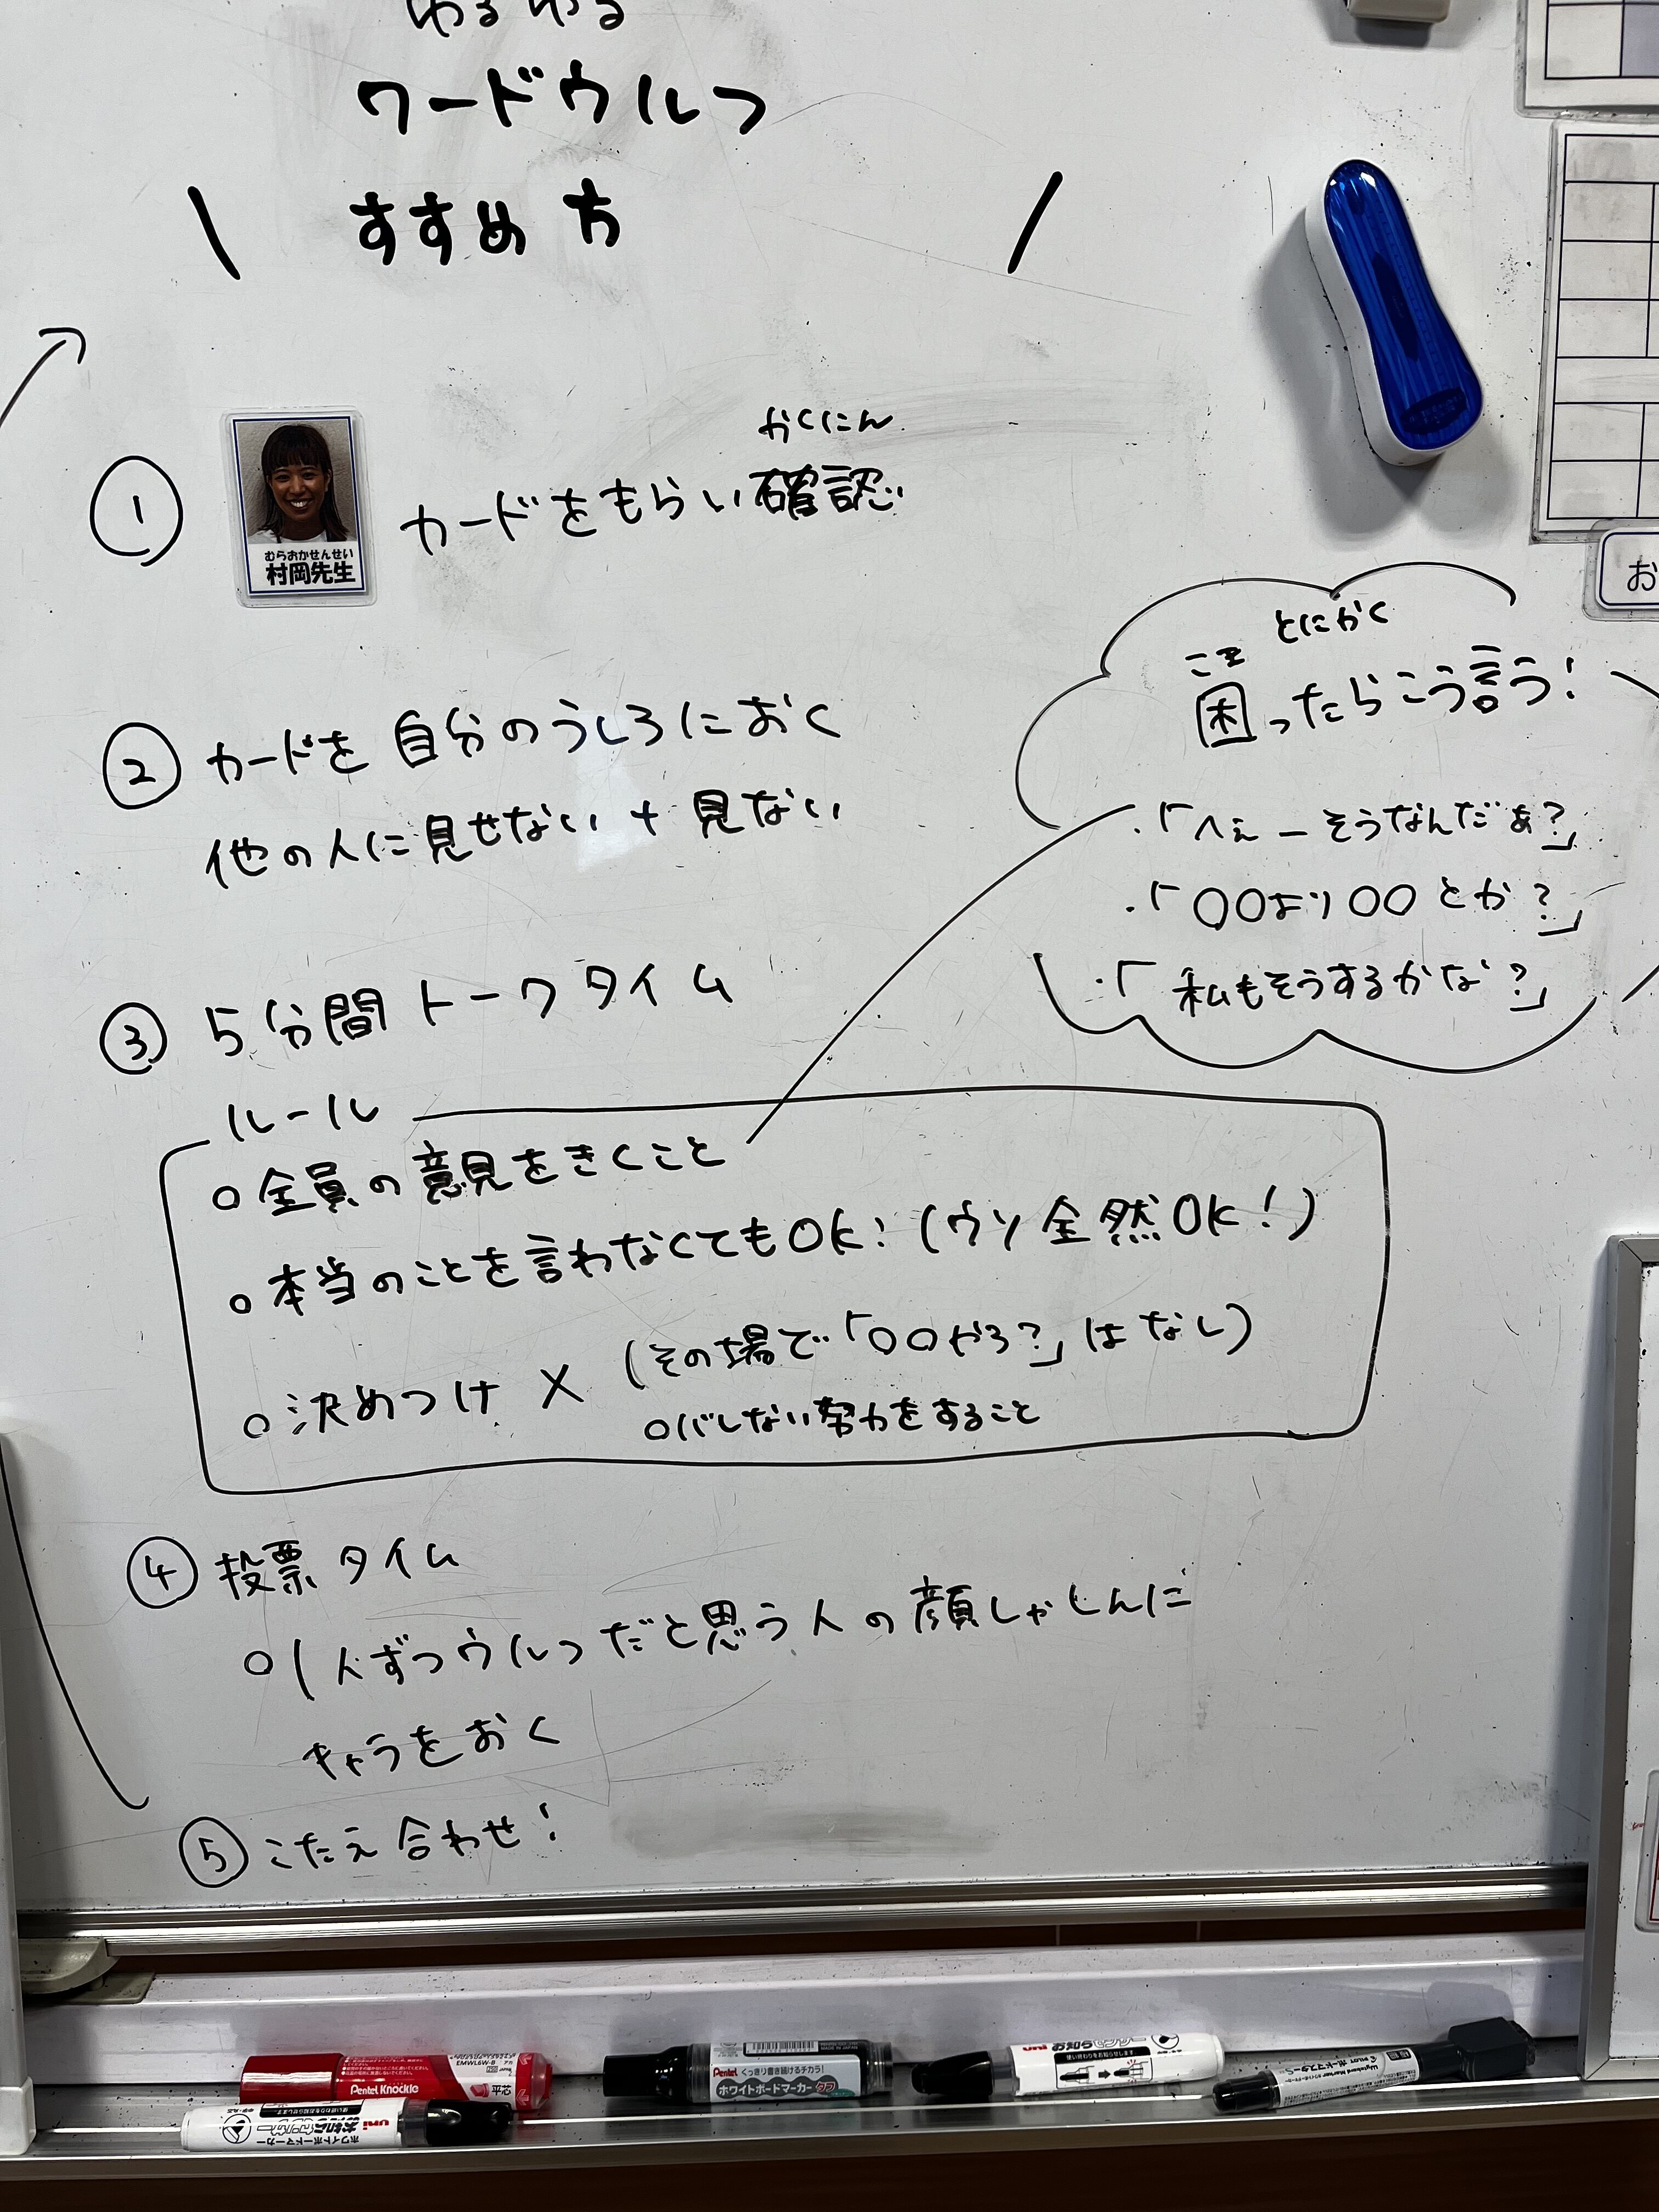 ワードウルフ
すすめ方
① カードをもらい確認
かくにん
むらおかせんせい
村岡先生
② カードを自分のうしろにおく
他の人に見せない + 見ない
とにかく
こま
困ったらこう言う!
・「へぇーそうなんだぁ?」
・「〇〇より〇〇とか?」
・「私もそうするかな?」
③ 5分間トークタイム
ルール
○全員の意見をきくこと
○本当のことを言わなくてもOK!(ウソ全然OK!)
○決めつけ × (その場で「〇〇やろ?」はなし)
○バレない努力をすること
④ 投票タイム
○1人ずつウルフだと思う人の顔しゃしんに
キャラをおく
⑤ こたえ合わせ!
お
Pentel Knockle
EMWL6W-B
平芯
Pentel くっきり書き続けるチカラ!
ホワイトボードマーカー タフ
MADE IN JAPAN
uni
ホワイトボードマーカー
お知らセンサー
使い終わりをお知らせします
PILOT ボードマスターS